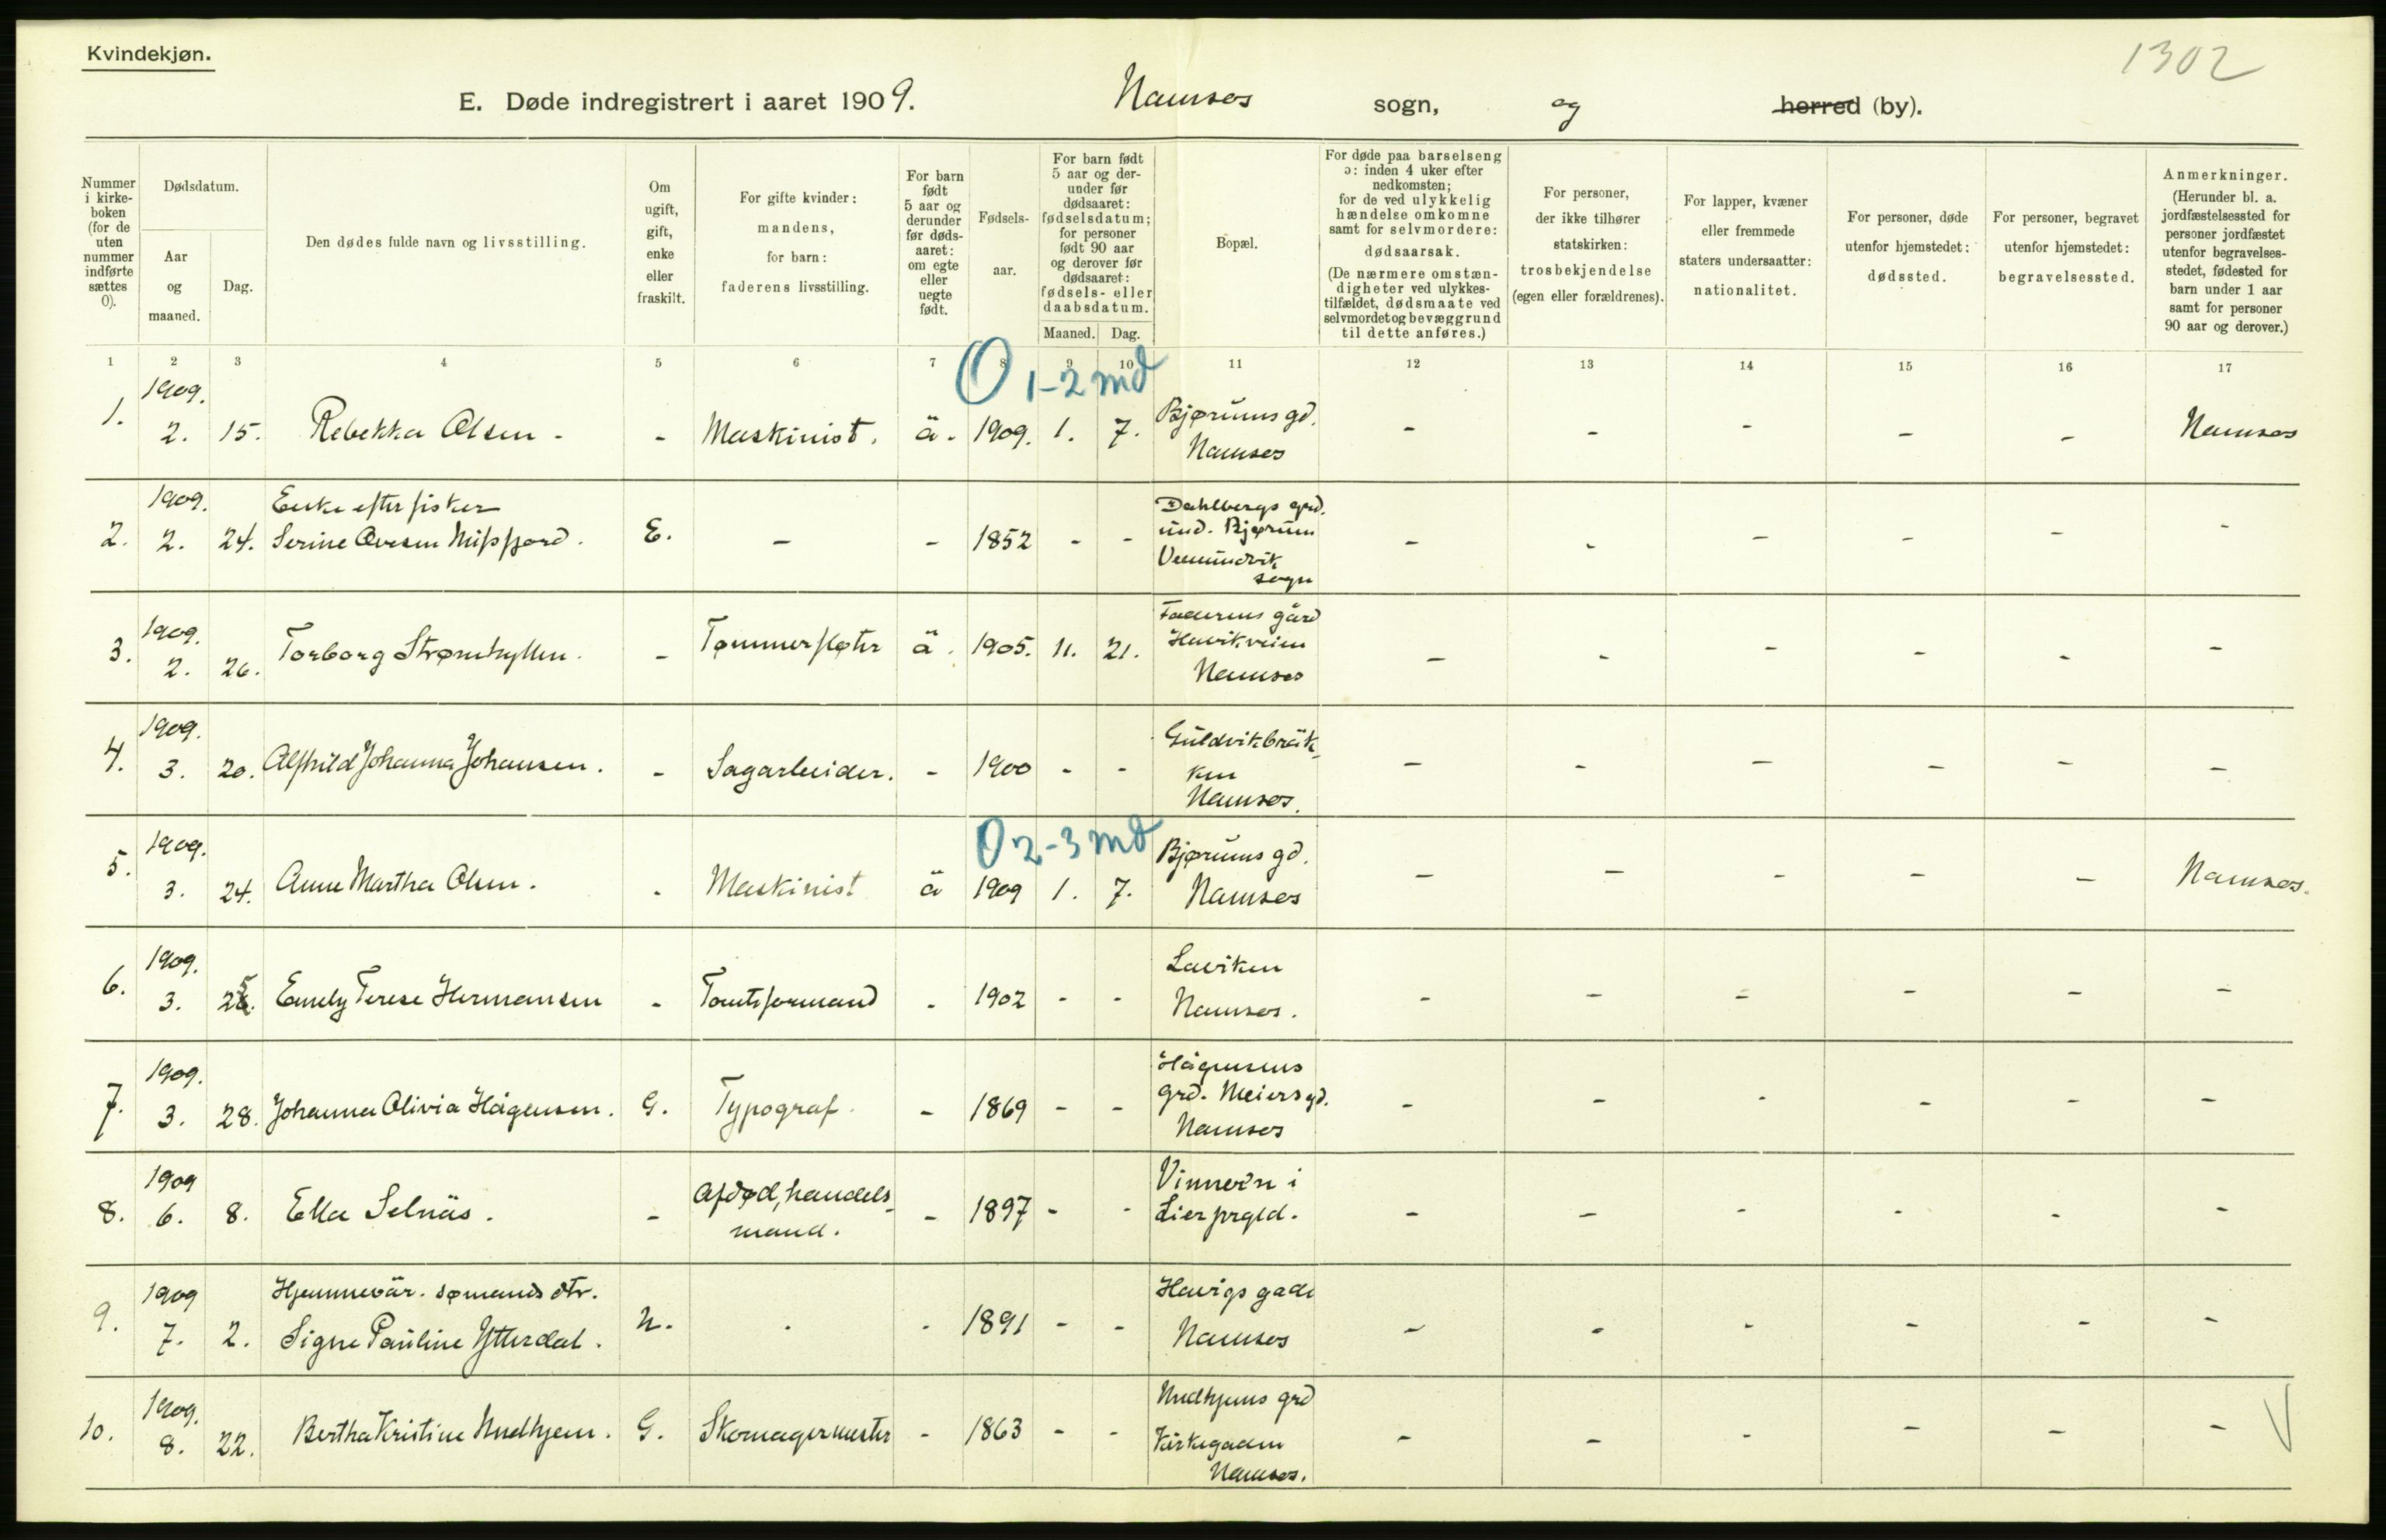 Kvindekjøn.
1302
E. Døde indregistrert i aaret 1909. Namsos sogn, og herred (by).
Nummer i kirke-boken (for de uten nummer indførte sættes 0).
Dødsdatum.
Aar og maaned.
Dag.
Den dødes fulde navn og livsstilling.
Om ugift, gift, enke eller fraskilt.
For gifte kvinder: mandens, for barn: faderens livsstilling.
For barn født 5 aar og derunder før døds-aaret: om egte eller uegte født.
Fødsels-aar.
For barn født 5 aar og der-under før dødsaaret: fødselsdatum; for personer født 90 aar og derover før dødsaaret: fødsels- eller daabsdatum.
Maaned. Dag.
Bopæl.
For døde paa barselseng ɔ: inden 4 uker efter nedkomsten; for de ved ulykkelig hændelse omkomne samt for selvmordere: dødsaarsak. (De nærmere omstæn-digheter ved ulykkes-tilfældet, dødsmaate ved selvmordet og bevæggrund til dette anføres.)
For personer, der ikke tilhører statskirken: trosbekjendelse (egen eller forældrenes).
For lapper, kvæner eller fremmede staters undersaatter: nationalitet.
For personer, døde utenfor hjemstedet: dødssted.
For personer, begravet utenfor hjemstedet: begravelsessted.
Anmerkninger. (Herunder bl. a. jordfæstelsessted for personer jordfæstet utenfor begravelses-stedet, fødested for barn under 1 aar samt for personer 90 aar og derover.)
1 2 3 4 5 6 7 8 9 10 11 12 13 14 15 16 17
0 1-2 md
1. 1909. 2. 15. Rebekka Olsen - - Maskinist. ä. 1909. 1. 7. Bjørums gd. Namsos - - - - - Namsos
2. 1909. 2. 24. Enke efter fisker Serine Ovesen Misfjord. E. - - 1852 - - Dahlbergs grd. und. Bjørum Vemundvik sogn - - - - - -
3. 1909. 2. 26. Torborg Strømhyllen. - Tømmerfløter ä. 1905. 11. 21. Faderens gård Havikveien Namsos - - - - - -
4. 1909. 3. 20. Alfhild Johanna Johansen. - Sagarbeider. - 1900 - - Guldvikbräk-ken Namsos. - - - - - -
0 2-3 md
5. 1909. 3. 24. Anne Martha Olsen. - Maskinist ä 1909 1. 7. Bjørums gd. Namsos - - - - - Namsos.
6. 1909. 3. 25. Emely Terese Hermansen - Tomtsformand - 1902 - - Laviken Namsos. - - - - - -
7. 1909. 3. 28. Johanna Olivia Hågensen. G. Typograf. - 1869 - - Hågensens grd. Meiersgd. Namsos - - - - - -
8. 1909 6. 8. Ella Selnäs. - Afdød, handels-mand. - 1897 - - Lier prgld. - - - - - -
9. 1909 7. 2. Hjemmevär. sømands dtr. Signe Pauline Ytterdal. U. - - 1891 - - Havigs gade Namsos - - - - - -
10. 1909. 8. 22. Bertha Kristine G. Skomagermester - 1863 - - grd Kirkegaden Namsos. - - - - - - V